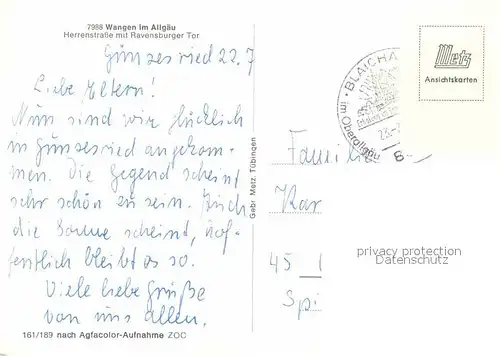 7988 Wangen im Allgäu
Herrenstraße mit Ravensburger Tor
Gunzesried 22.7
Liebe Eltern!
Nun sind wir glücklich
in Gunzesried angekom-
men. Die Gegend scheint
sehr schön zu sein. Auch
die Sonne scheint, hof-
fentlich bleibt es so.
Viele liebe Grüße
von uns allen.
161/189 nach Agfacolor-Aufnahme ZOC
Gebr. Metz, Tübingen
BLAICHA
im Oberallgäu
Metz
Ansichtskarten
Famili
Kar
privacy protection
Datenschutz
45
Spi